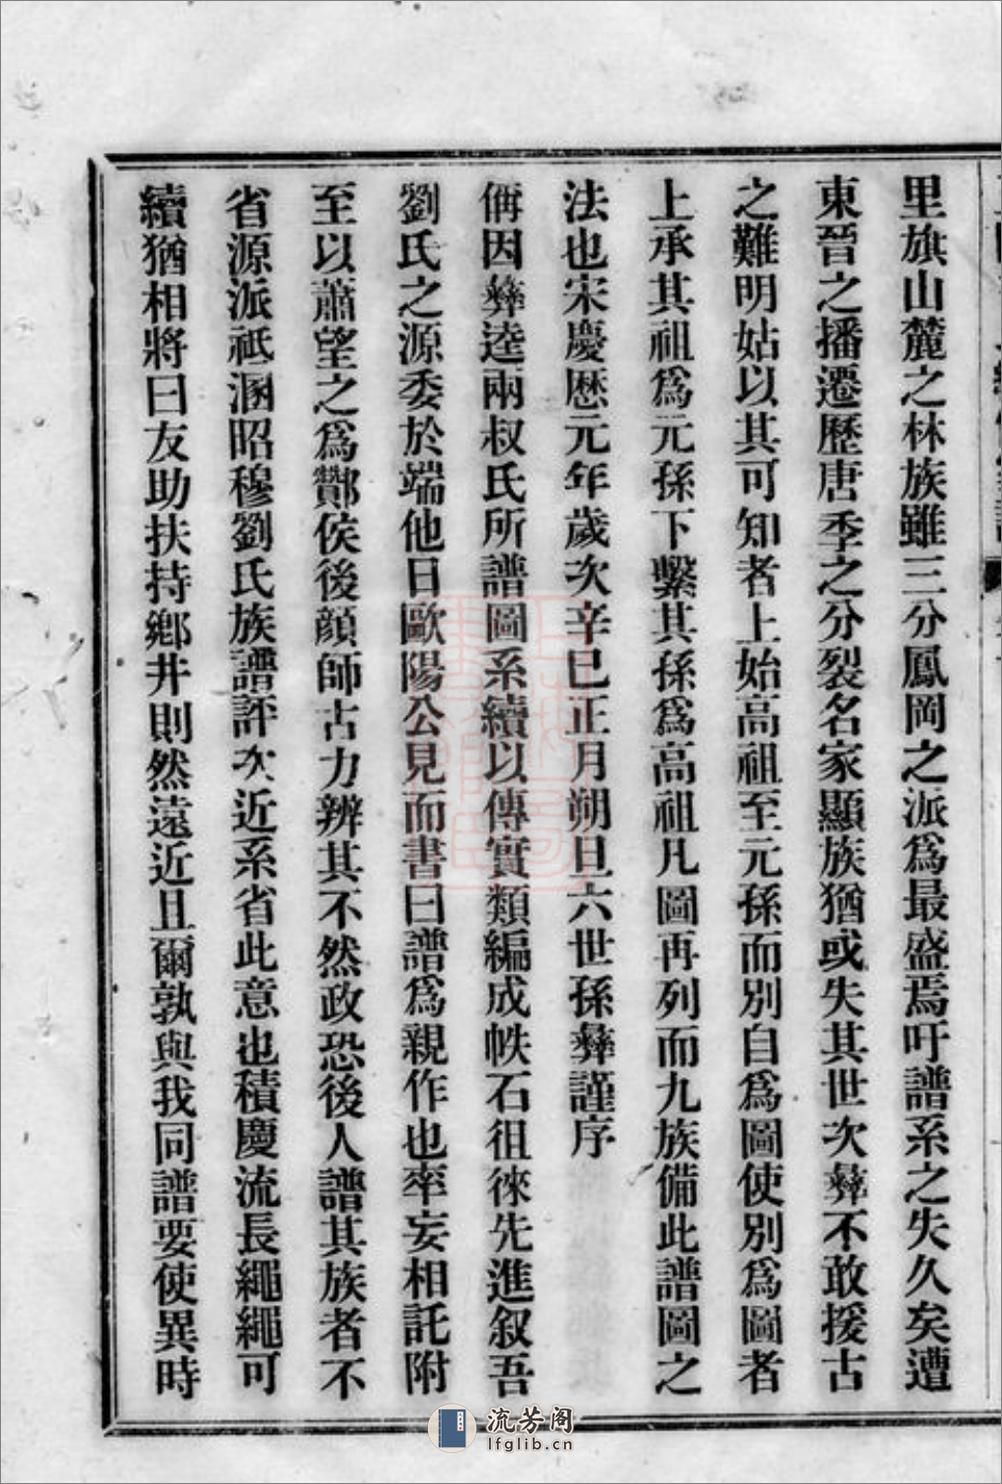 里旗山麓之林族雖三分鳳岡之派爲最盛焉吁譜系之失久矣遭
東晉之播遷歷唐季之分裂名家顯族猶或失其世次彝不敢援古
之難明姑以其可知者上始高祖至元孫而別自爲圖使別爲圖者
上承其祖爲元孫下繫其孫爲高祖凡圖再列而九族備此譜圖之
法也宋慶厯元年歲次辛巳正月朔旦六世孫彝謹序
偁因彝逵兩叔氏所譜圖系續以傳實類編成帙石徂徠先進叙吾
劉氏之源委於端他日歐陽公見而書曰譜爲親作也率妄相託附
至以蕭望之爲酇侯後顔師古力辨其不然政恐後人譜其族者不
省源派祗溷昭穆劉氏族譜評次近系省此意也積慶流長繩繩可
續猶相將曰友助扶持鄉井則然遠近且爾孰與我同譜要使異時
流芳阁
lfglib.cn